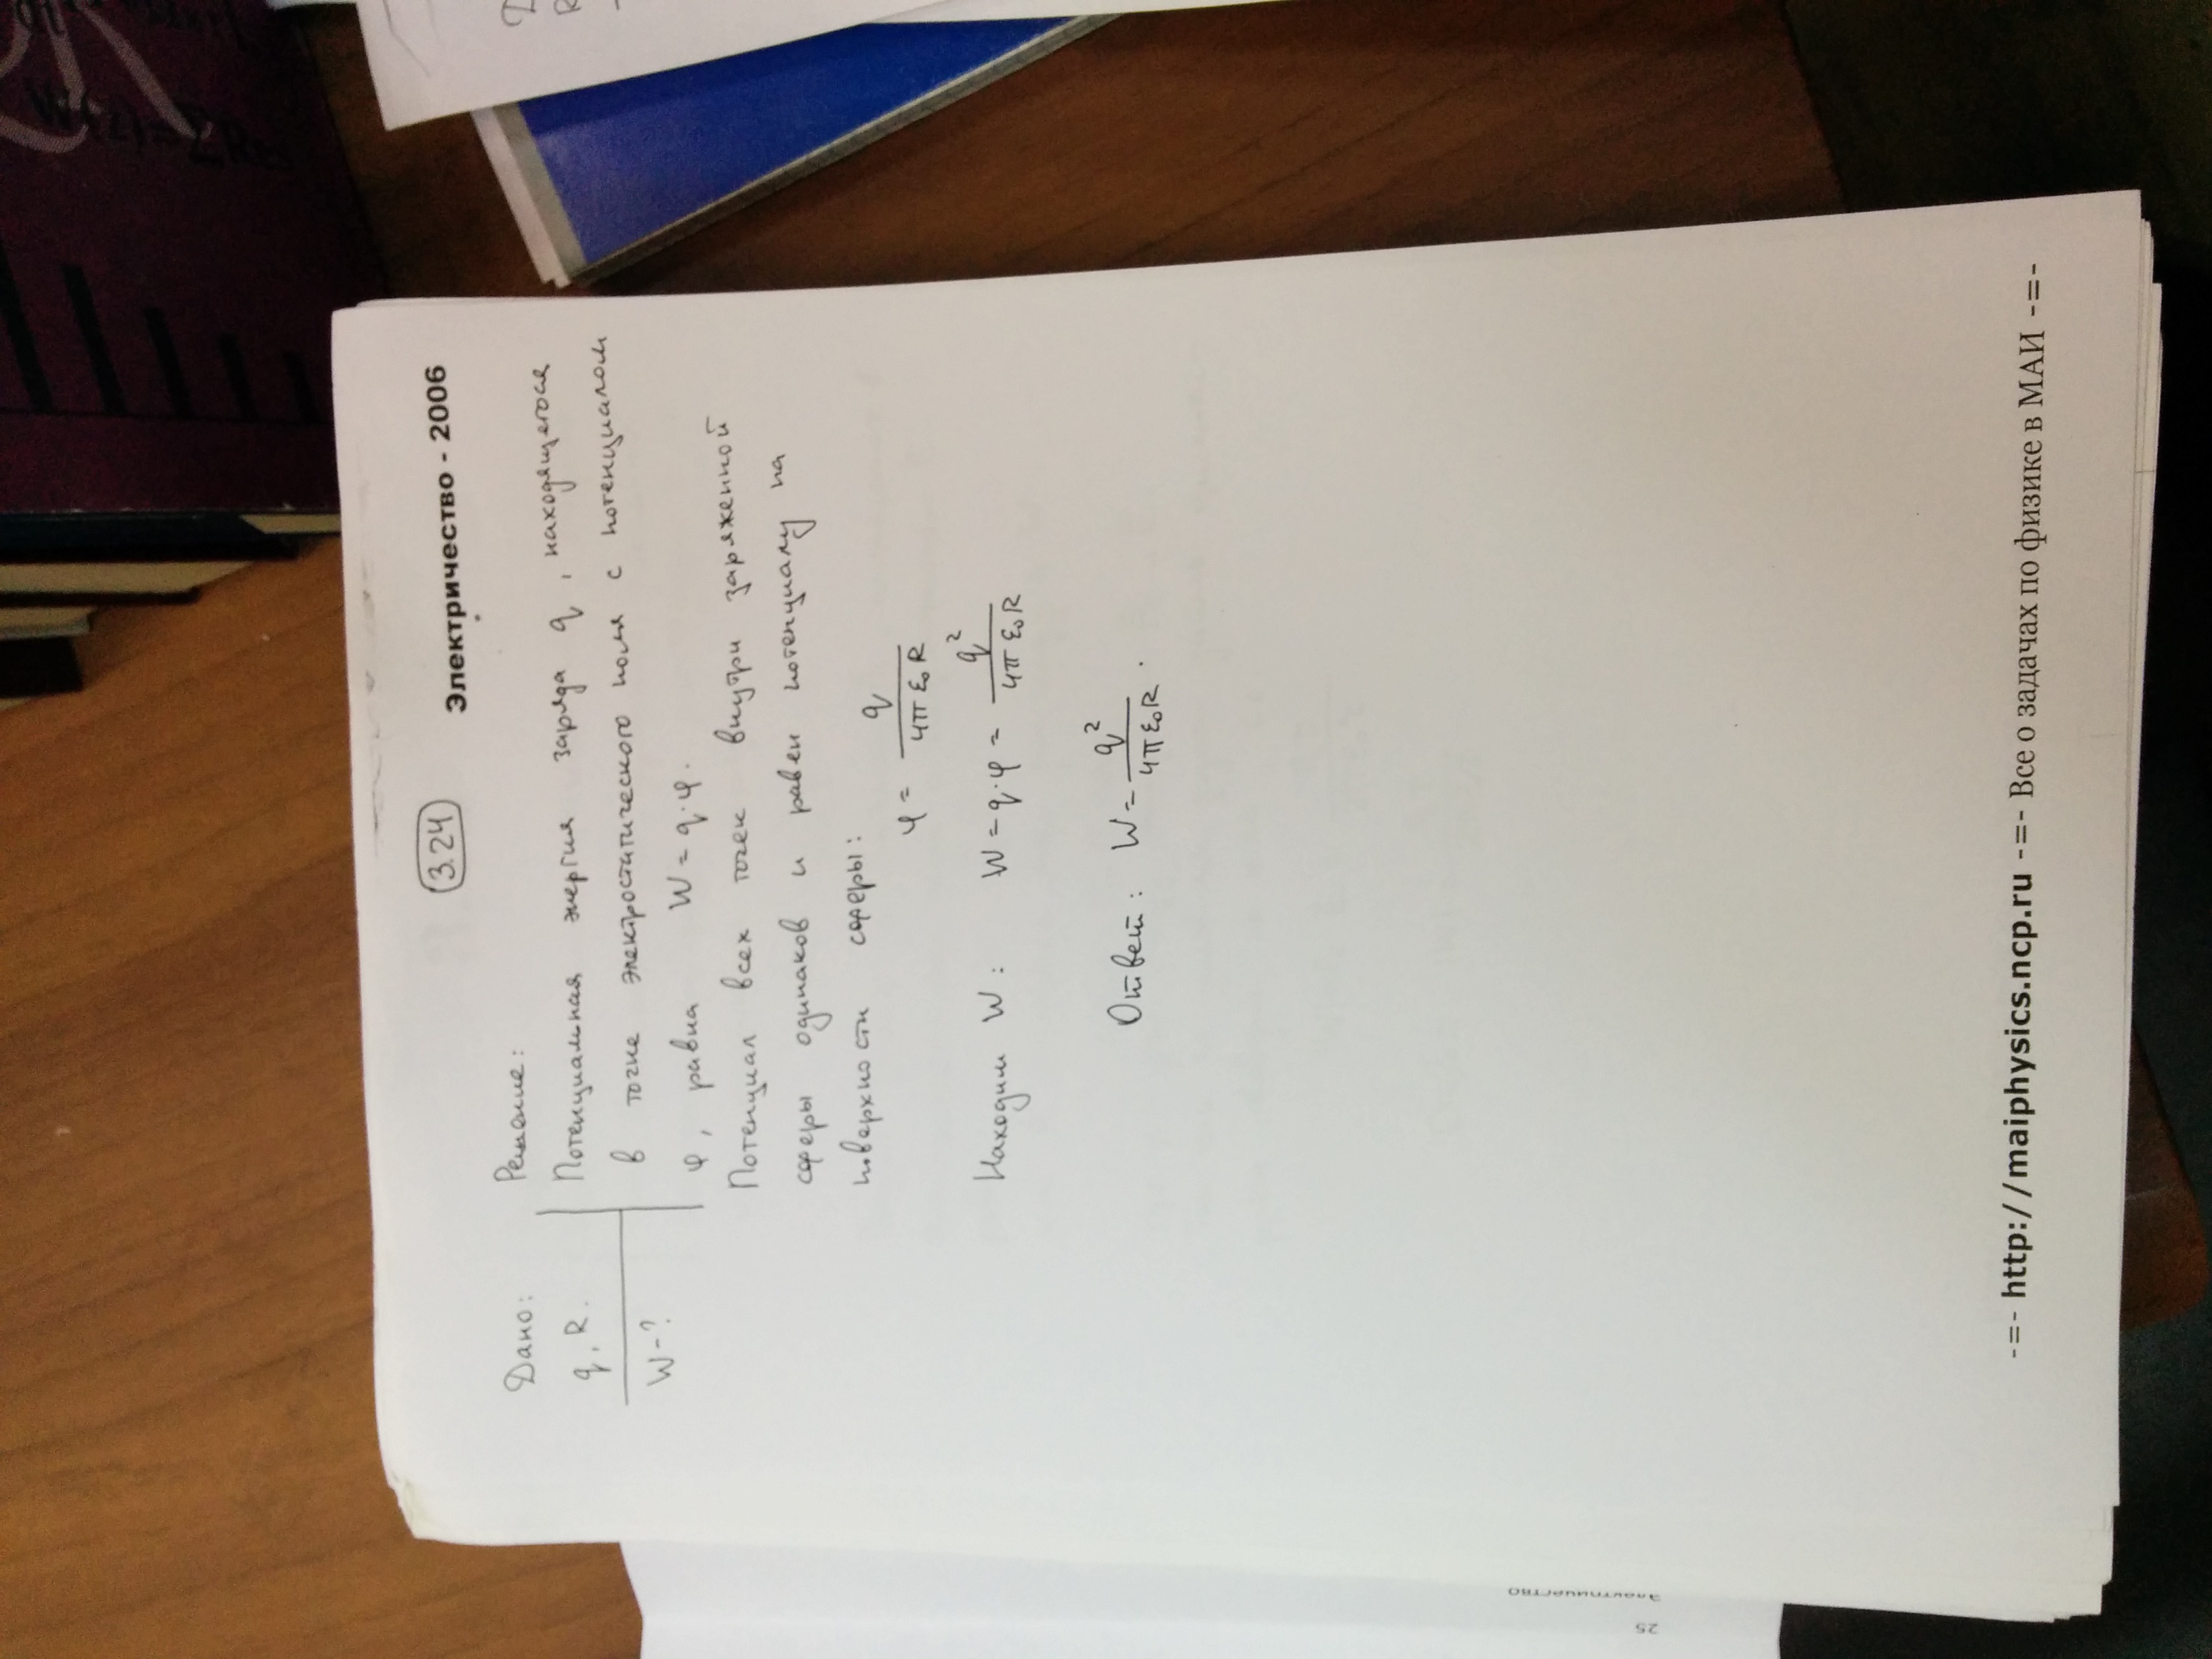 Электричество - 2006
3.24
Дано:
q, R.
W-?
Решение:
Потенциальная энергия заряда q, находящегося
в точке электростатического поля с потенциалом
φ, равна W = q·φ.
Потенциал всех точек внутри заряженной
сферы одинаков и равен потенциалу на
поверхности сферы:
φ = q / 4πε₀R
Находим W: W = q·φ = q² / 4πε₀R
Ответ: W = q² / 4πε₀R.
-=- http://maiphysics.ncp.ru -=- Все о задачах по физике в МАИ -=-
25
Электричество